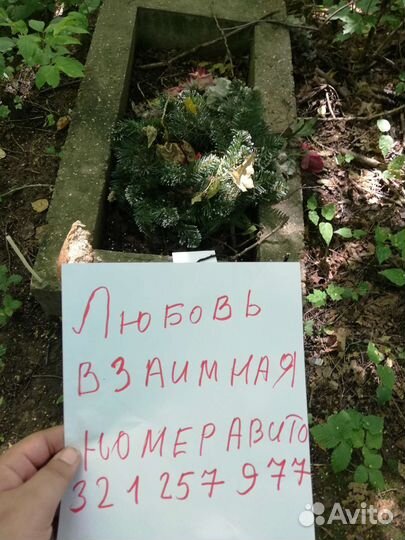 Любовь
взаимная
номер авито
321 257 977
Avito